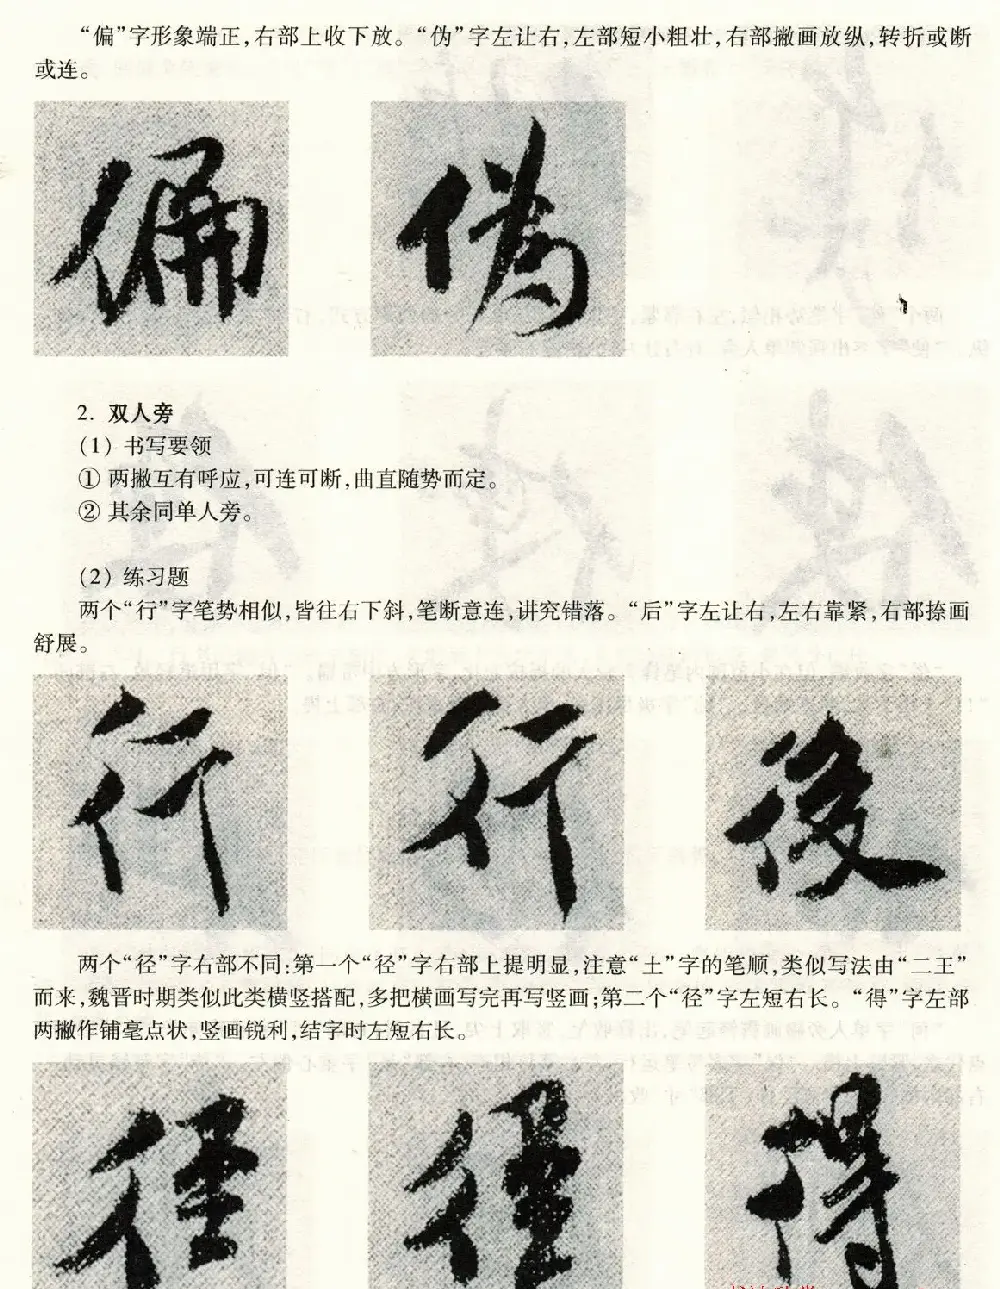 “偏”字形象端正，右部上收下放。“伪”字左让右，左部短小粗壮，右部撇画放纵，转折或断
或连。
偏 偽
2. 双人旁
(1) 书写要领
① 两撇互有呼应，可连可断，曲直随势而定。
② 其余同单人旁。
(2) 练习题
两个“行”字笔势相似，皆往右下斜，笔断意连，讲究错落。“后”字左让右，左右靠紧，右部捺画
舒展。
行 行 後
两个“径”字右部不同：第一个“径”字右部上提明显，注意“土”字的笔顺，类似写法由“二王”
而来，魏晋时期类似此类横竖搭配，多把横画写完再写竖画；第二个“径”字左短右长。“得”字左部
两撇作铺毫点状，竖画锐利，结字时左短右长。
径 径 得